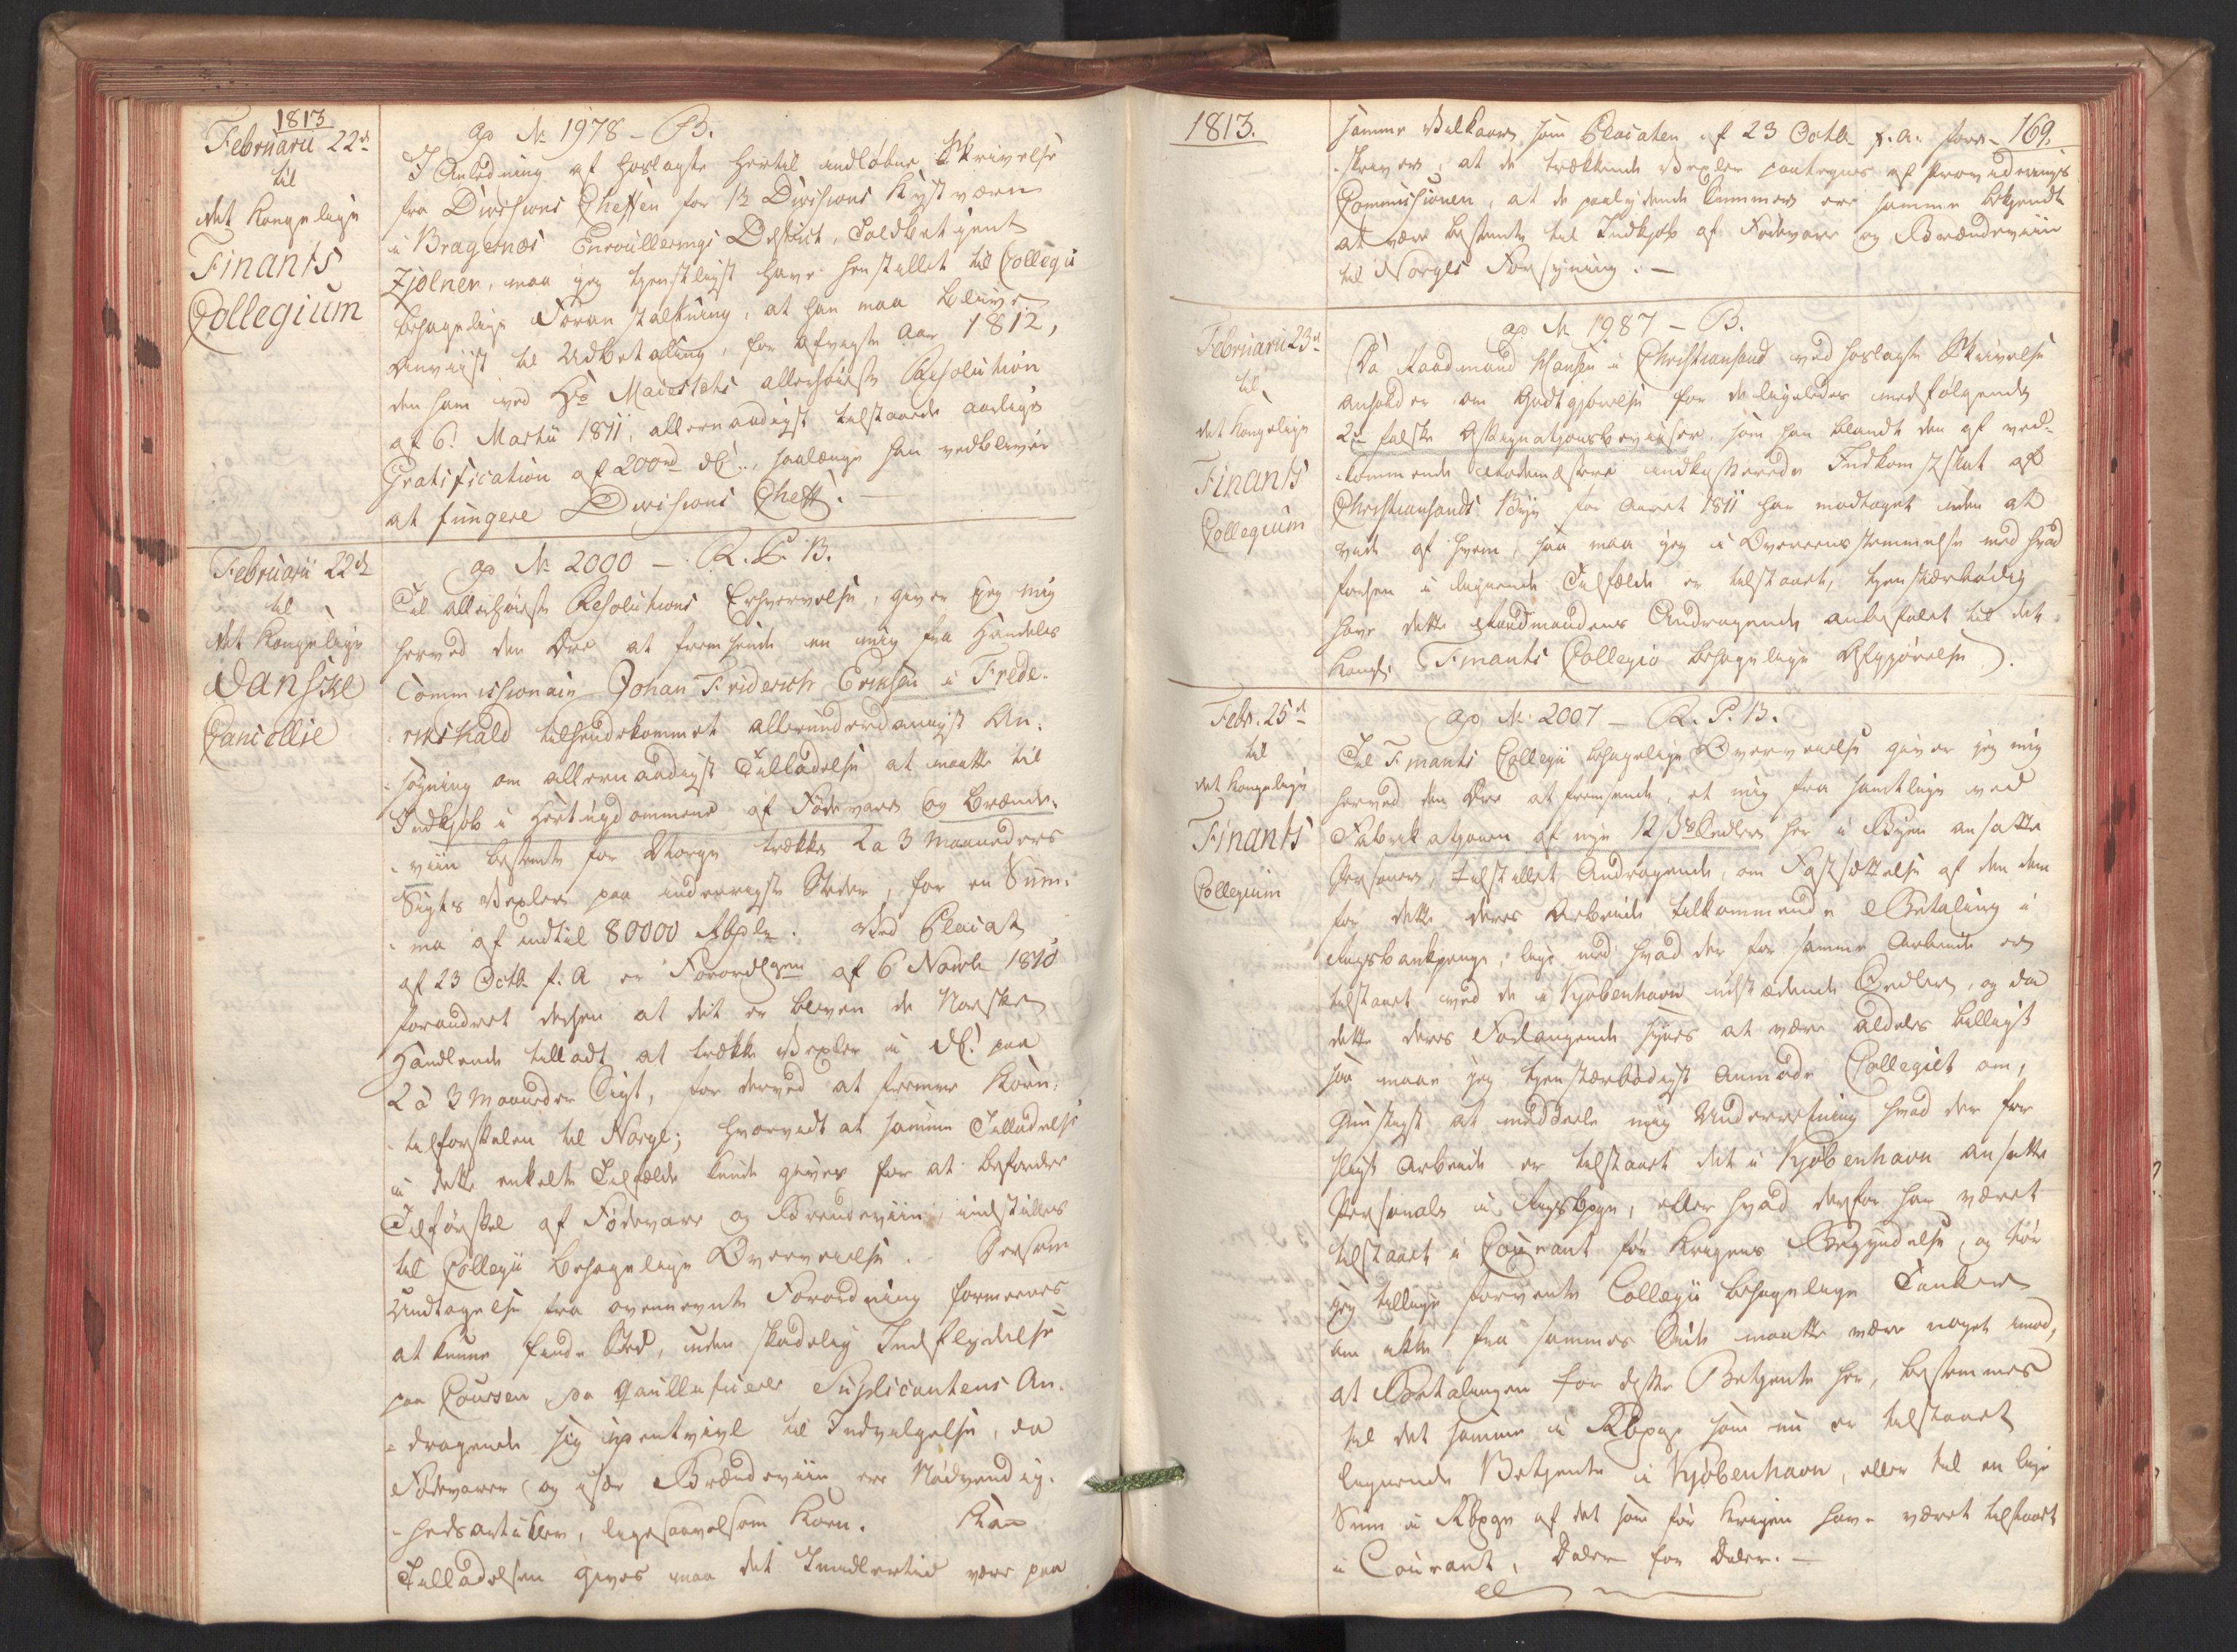 1813
Februarii 22d
til
det Kongelige
Finants
Collegium
ap No 1978 - B.
I Anledning af hoslagte hertil indløbne Skrivelse
fra Divisions Cheffen for 12 Divisions Kystværn
i Bragernæs Enroullerings District, Toldbetjent
Zjølner, maa jeg tjenstligst have henstillet til Collegii
behagelige Foranstaltning, at han maa blive
Anviist til Udbetaling, for afvigte Aar 1812,
den ham ved Hs Maiestets allerhøieste Resolution
af 6. Martii 1811, allernaadigst tilstaaede aarlige
Gratification af 200 rd DC., saalænge han vedbliver
at fungere Divisions Cheff. -
Februarii 22d
til
det Kongelige
Danske
Cancellie
ap No 2000 - R. P. B.
Til allerhøieste Resolutions Erhvervelse, giver jeg mig
herved den Ære at fremsende en mig fra Handels
Commissionair Johan Friderich Eriksen i Frede-
rikshald tilhændekommet allerunderdanigst An-
søgning om allernaadigst Tilladelse at maatte til
Indkjøb i Hertugdommene af Fødevarer og Brænde-
viin bestemt for Norge trække 2 a 3 Maaneders
Sigts Vexler paa indenrigske Steder, for en Sum-
ma af indtil 80000 Rbdlr. Ved Placat
af 23 Octbr f. A. er Forordgen af 6 Novbr 1810
forandret derhen at det er bleven de Norske
Handlende tilladt at trække Vexler i DC. paa
2 à 3 Maaneder Sigt, for derved at fremme Korn-
tilførselen til Norge; hvorvidt at samme Tilladelse
i dette enkelte Tilfælde kunde gives for at befordre
Tilførsel af Fødevare og Brendeviin, indstilles
til Collegii behagelige Overveielse. Dersom
Undtagelse fra ovennevnte Forordning formeenes
at kunne finde Sted, uden skadelig Indflydelse
paa Coursen, da qvallificerer Suplicantens An-
dragende sig upaatvivl til Indvilgelse, da
Fødevarer og især Brændeviin ere Nødvendig-
hedsartikler, ligesaavelsom Korn.
Tilladelsen gives maa det Imidlertid være paa
1813.
169.
samme Vilkaar, som Placaten af 23 Octbr f. a. fore-
skriver, at de trækkende Vexler paategnes af Provideerings
Commissionen, at de paalydende Summer ere samme bekjendt
at være bestemte til Indkjøb af Fødevare og Brændeviin
til Norges Forsyning. -
Februarii 23d
til
det Kongelige
Finants
Collegium
ap No 1987 - B.
Da Raadmand Hansen i Christiansand ved hoslagte Skrivelse
anholder om Godtgjørelse for de ligeledes medfølgende
2de falske Assignationsbeviiser, som han blandt den af ved-
kommende indkasserede Indkomstskat af
Christiansands Bye for Aaret 1811 har modtaget uden at
vide af hvem, saa maa jeg i Overeensstemmelse med hvad
forhen i lignende Tilfælde er tilstaaet, tjenstærbødig
have dette Raadmandens Andragende anbefalet til det
Kongl. Finants Collegio behagelige Afgjørelse.
Febr. 25d
til
det Kongelige
Finants
Collegium
ap. No 2007 - R. P. B.
Til Finants Collegii behagelige Overveielse giver jeg mig
herved den Ære at fremsende, et mig fra samtlige ved
Fabrikationen af nye 12 ßs Sedler her i Byen ansatte
Personer, tilstillet Andragende, om Fastsættelse af den dem
for dette deres Arbeide tilkommende Betaling i
Rigsbankpenge, lige med hvad der for samme Arbeide er
tilstaaet ved de i Kjøbenhavn udstædende Sedler, og da
dette deres Forlangende synes at være aldeles billigt
saa maae jeg tjenstærbødigst Anmode Collegiet om,
gunstigst at meddeele mig Underretning hvad der for
sligt Arbeide er tilstaaet det i Kjøbenhavn ansatte
Personale i Rigsbpge, eller hvad derfor har været
tilstaaet i Courant før Krigens Begyndelse, og tør
jeg tillige forvente Collegii behagelige Tanker
om ikke fra sammes Side maatte være noget imod,
at Betalingen for disse Betjente her, bestemmes
til det samme i Rbpge som nu er tilstaaet
lignende Betjente i Kjøbenhavn, eller til en lige
Sum i Rbpge af det som før Krigen have været tilstaaet
i Courant, Daler for Daler. -